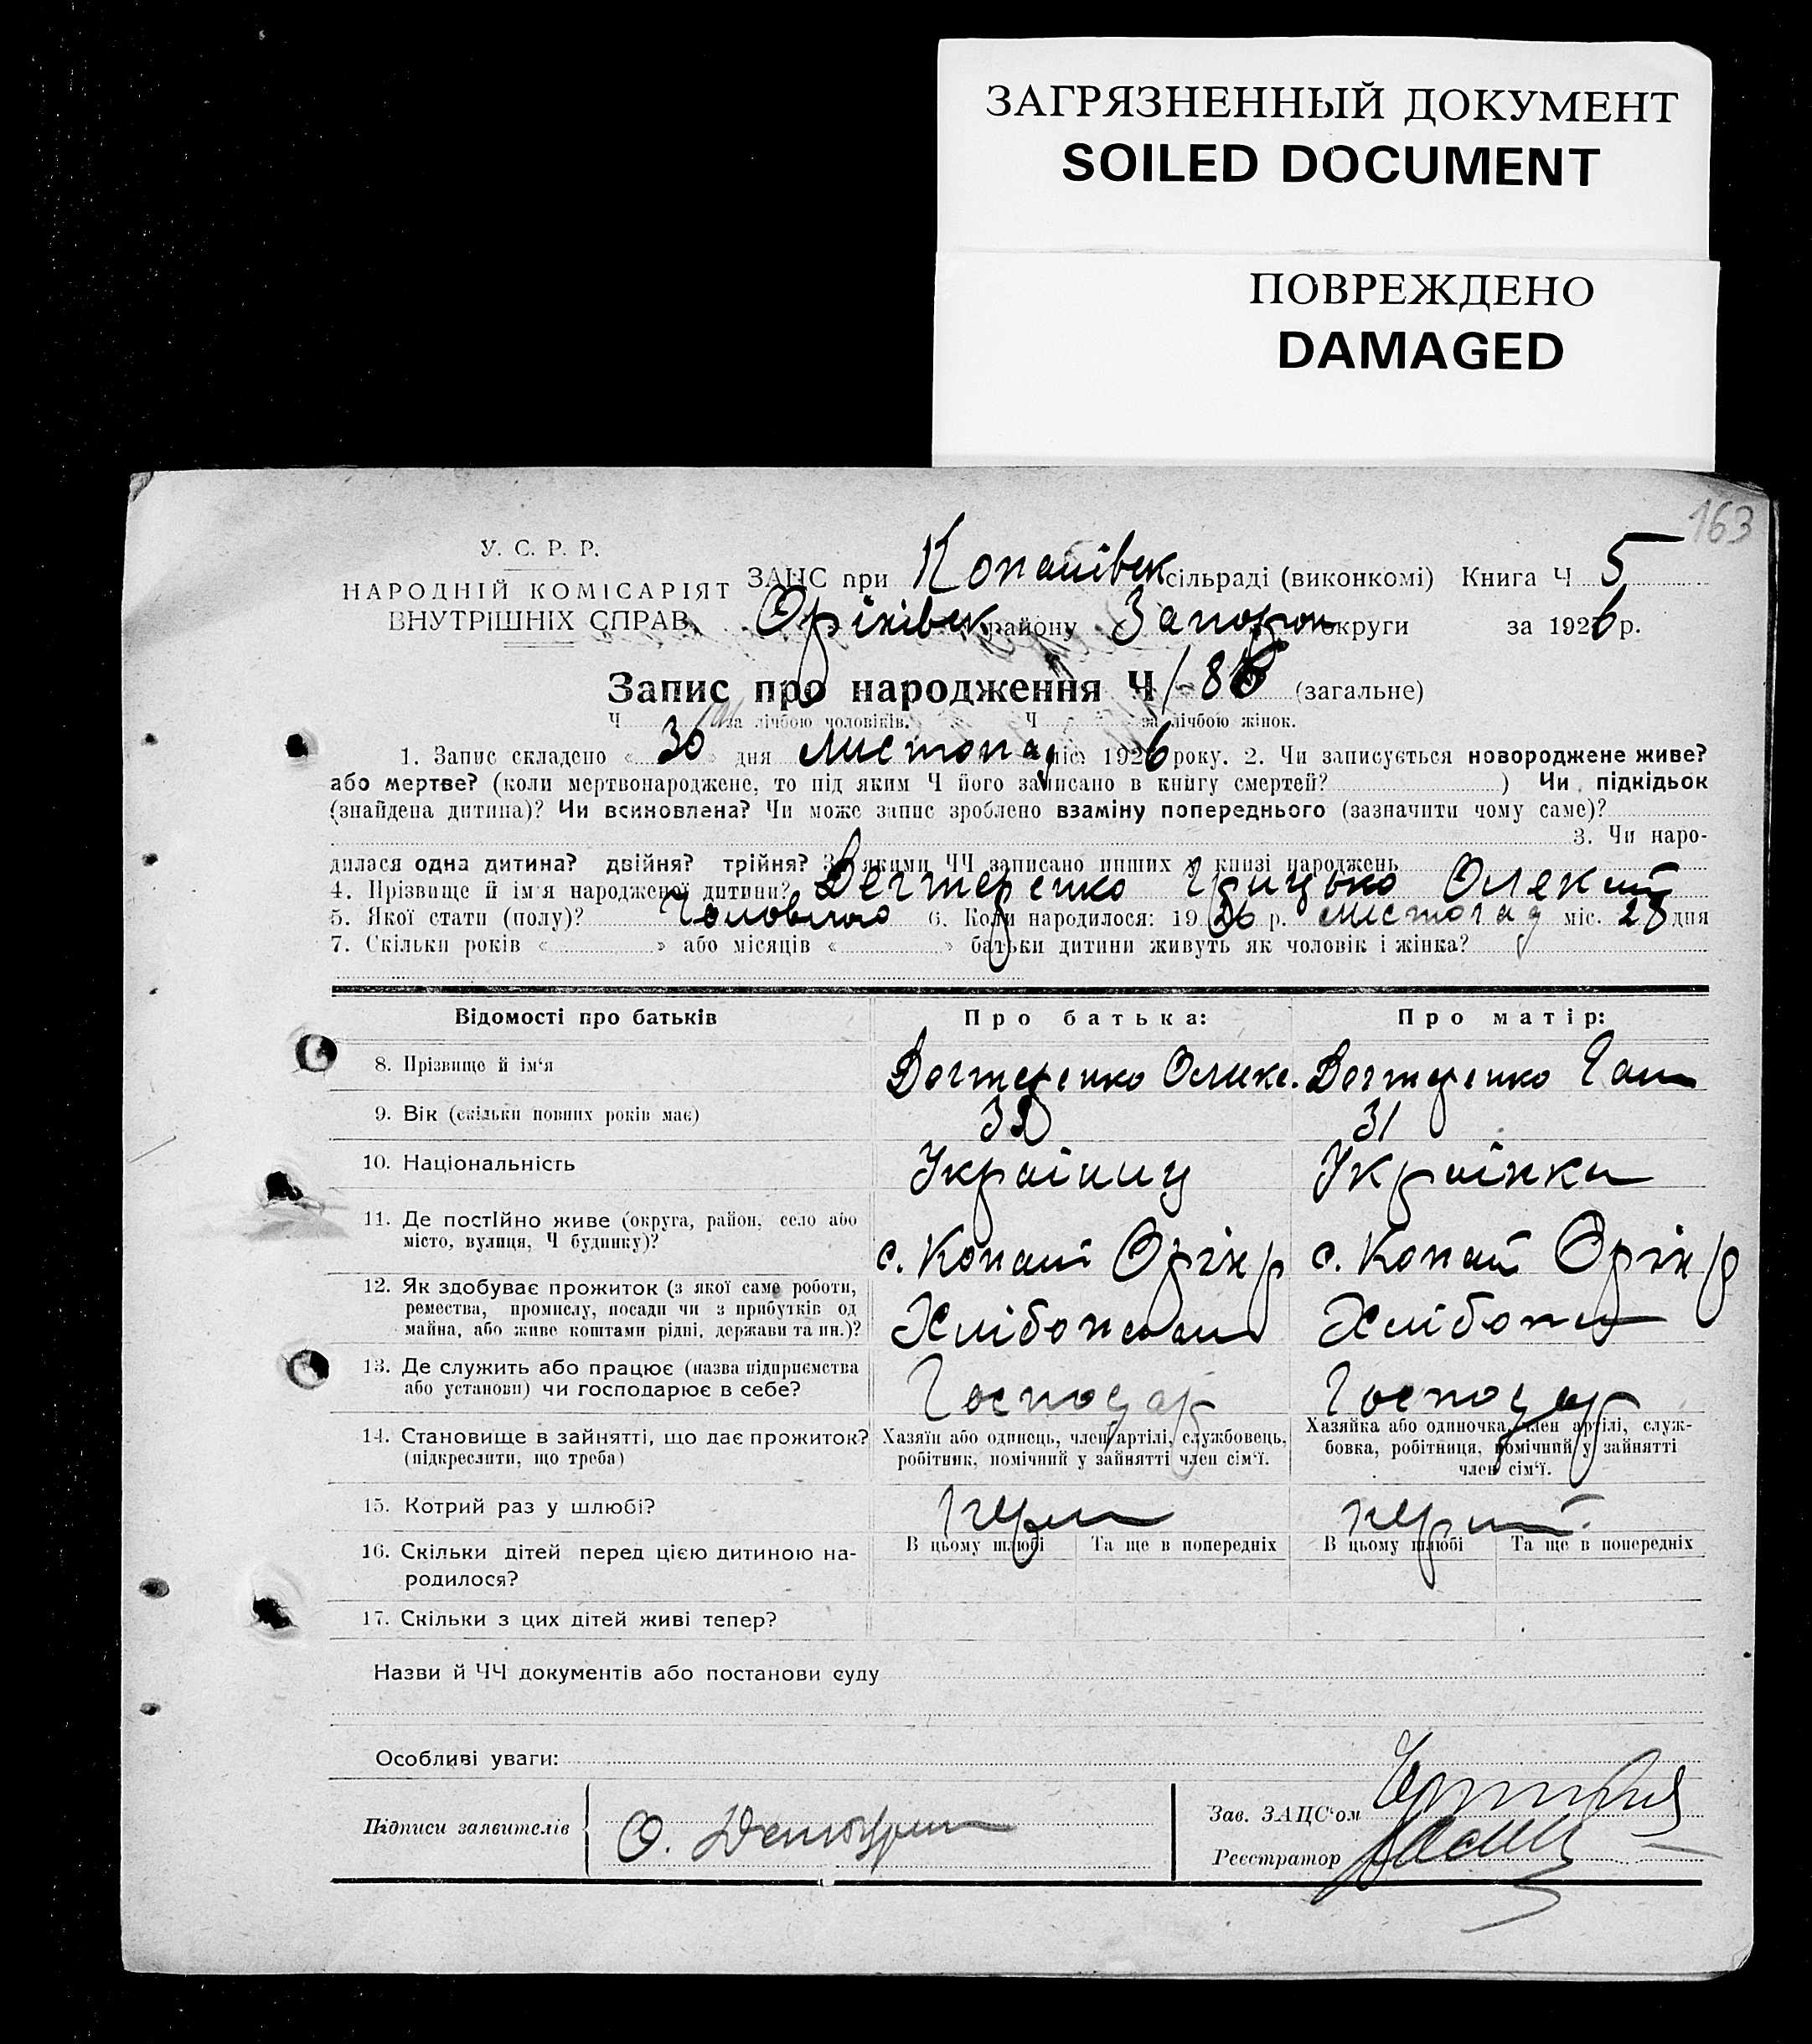 ЗАГРЯЗНЕННЫЙ ДОКУМЕНТ
SOILED DOCUMENT
ПОВРЕЖДЕНО
DAMAGED
163
У. С. Р. Р.
НАРОДНІЙ КОМІСАРІЯТ
ВНУТРІШНІХ СПРАВ
ЗАЦС при Копанівск сільраді (виконкомі) Книга Ч 5
Оріхівск району Запорож округи за 1926 р.
Запис про народження Ч 86 (загальне)
Ч за лічбою чоловіків. Ч за лічбою жінок.
1. Запис складено « 30 » дня Листопад міс. 1926 року. 2. Чи записується новороджене живе?
або мертве? (коли мертвонароджене, то під яким Ч його записано в книгу смертей? ) Чи підкідьок
(знайдена дитина)? Чи всиновлена? Чи може запис зроблено взаміну попереднього (зазначити чому саме)?
3. Чи наро-
дилася одна дитина? двійня? трійня? З якими ЧЧ записано инших в книзі народжень
4. Прізвище й ім'я народженої дитини? Дегтеренко Грицько Олексій
5. Якої стати (полу)? Чоловічого 6. Коли народилося: 1926 р. Листопад міс. 28 дня
7. Скільки років « » або місяців « » батьки дитини живуть як чоловік і жінка?
Відомості про батьків Про батька: Про матір:
8. Прізвище й ім'я Дегтеренко Олекс. Дегтеренко Ган
9. Вік (скільки повних років має) 31
10. Національність Українц Українка
11. Де постійно живе (округа, район, село або
місто, вулиця, Ч будинку)? с. Копані Оріх р с. Копані Оріх р
12. Як здобуває прожиток (з якої саме роботи,
ремества, промислу, посади чи з прибутків од
майна, або живе коштами рідні, держави та ин.)? Хлібопаш Хлібопа
13. Де служить або працює (назва підприємства
або установи) чи господарює в себе? Господар Господар
14. Становище в зайнятті, що дає прожиток?
(підкреслити, що треба)
Хазяїн або одинець, член артілі, службовець,
робітник, помічний у зайнятті член сім'ї.
Хазяйка або одиночка, член артілі, служ-
бовка, робітниця, помічний у зайнятті
член сім'ї.
15. Котрий раз у шлюбі? перш перший
16. Скільки дітей перед цією дитиною на-
родилося?
В цьому шлюбі Та ще в попередніх В цьому шлюбі Та ще в попередніх
17. Скільки з цих дітей живі тепер?
Назви й ЧЧ документів або постанови суду
Особливі уваги:
Підписи заявителів О.
Зав. ЗАЦС'ом
Реєстратор